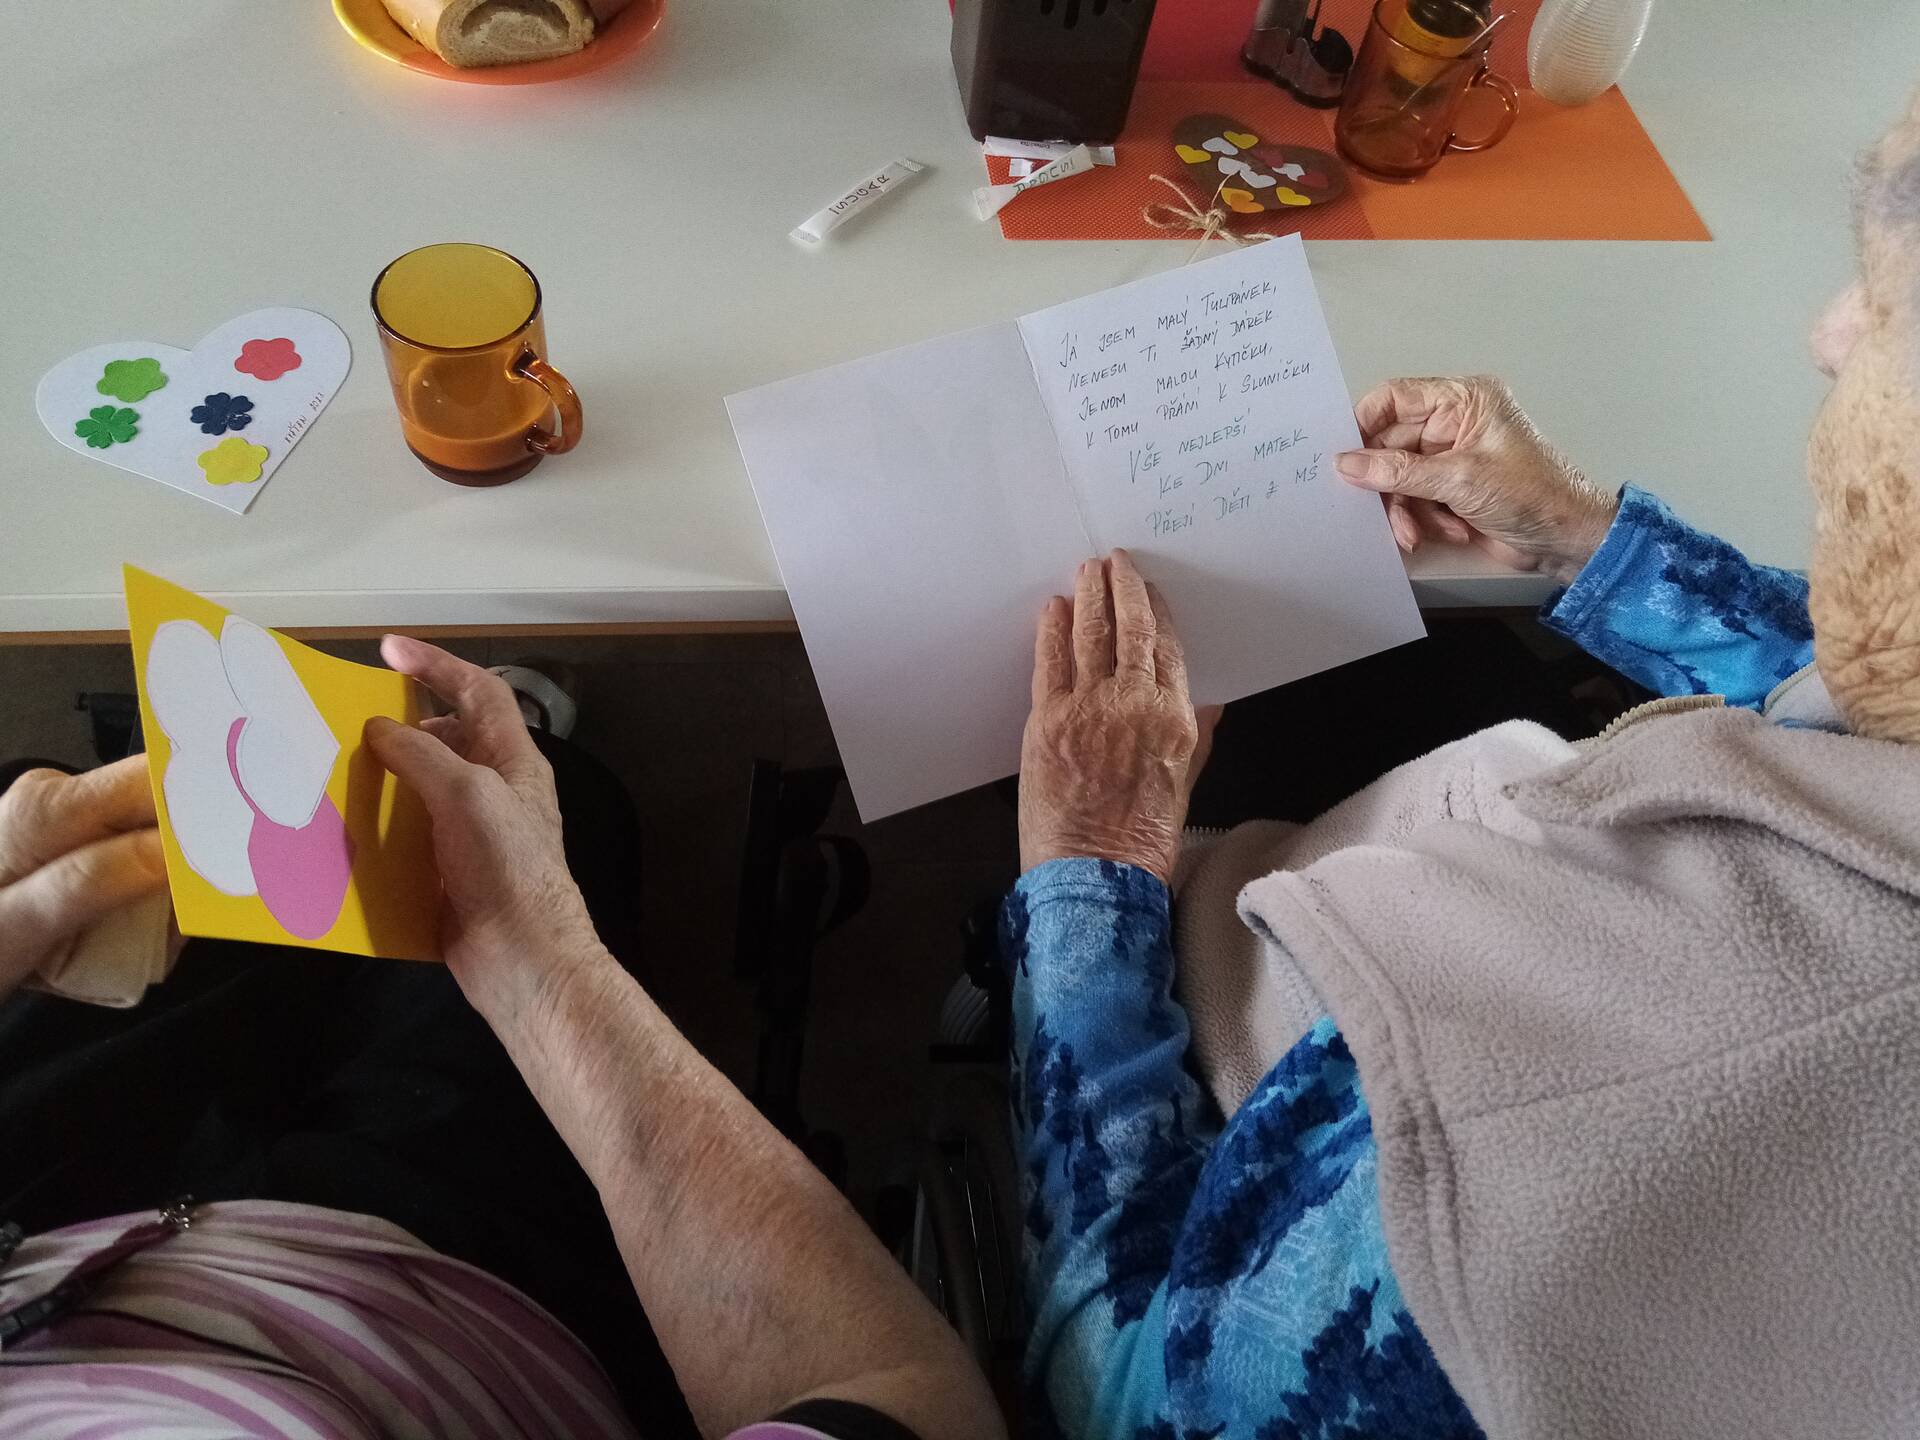 ISUGAR
ISUGAR
JÁ JSEM MALÝ TULIPÁNEK,
NENESU TI ŽÁDNÝ DÁREK.
JENOM MALOU KYTIČKU,
K TOMU PŘÁNÍ K SLUNÍČKU.
VŠE NEJLEPŠÍ
KE DNI MATEK
PŘEJÍ DĚTI Z MŠ